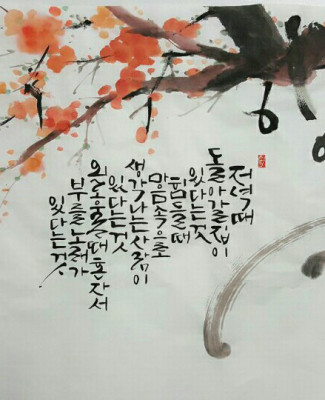 저녁때
돌아갈 집이
있다는것
힘들때
맘속으로
생각나는 사람이
있다는것
외로울때 혼자서
부를 노래가
있다는것